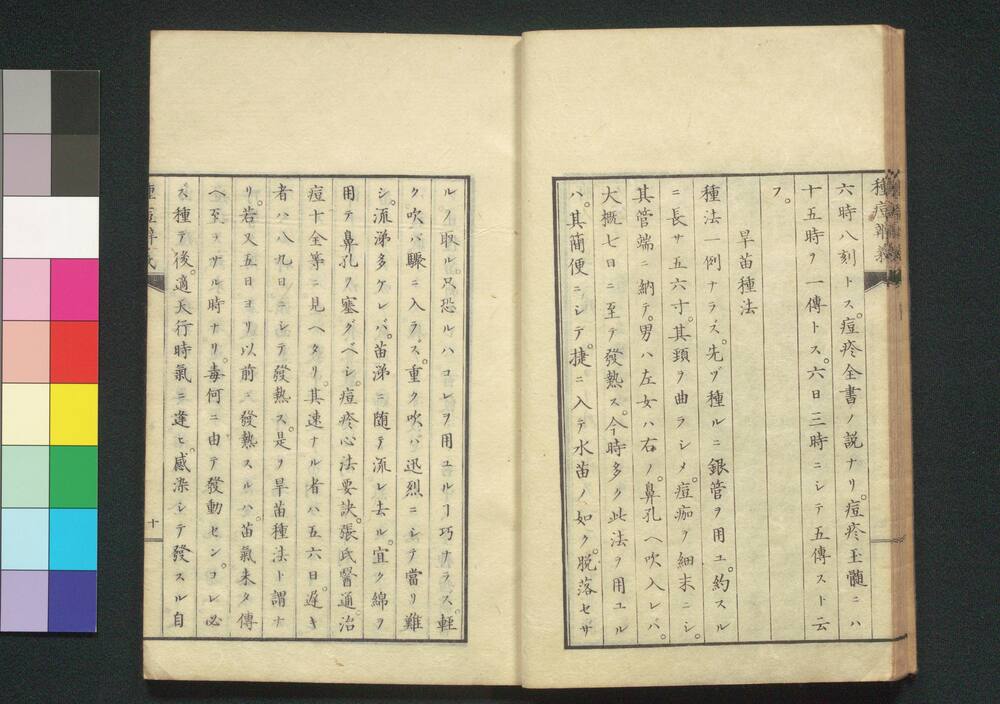 種痘辨義
六時八刻トス。痘疹全書ノ説ナリ。痘疹玉髓ニハ
十五時ヲ一傳トス。六日三時ニシテ五傳スト云
フ。
旱苗種法
種法一例ナラズ。先ヅ種ルニ銀管ヲ用ユ。約スル
ニ長サ五六寸。其頭ヲ曲ラシメ。痘痂ヲ細末ニシ。
其管端ニ納テ。男ハ左女ハ右ノ。鼻孔ヘ吹入レバ。
大概七日ニ至テ發熱ス。今時多ク此法ヲ用ユル
ハ。其簡便ニシテ。捷ニ入テ水苗ノ如ク。脱落セザ
ルノ取ル。只恐ルハコレヲ用ユルヿ巧ナラズ。輕
ク吹バ驟ニ入ラズ。重ク吹バ迅烈ニシテ當リ難
シ。流涕多ケレバ。苗涕ニ随テ流レ去ル。宜ク綿ヲ
用テ鼻孔ヲ塞グベシ。痘疹心法要訣。張氏醫通。治
痘十全等ニ見ヘタリ。其速ナル者ハ五六日。遅キ
者ハ八九日ニシテ發熱ス。是ヲ旱苗種法ト謂ナ
リ。若又五日ヨリ以前ニ發熱スルハ。苗氣未タ傳
ヘ至ラザル時ナリ。毒何ニ由テ發動センコレ必
ズ種テ後。適天行時氣ニ逢ヒ。感染シテ發スル自
十